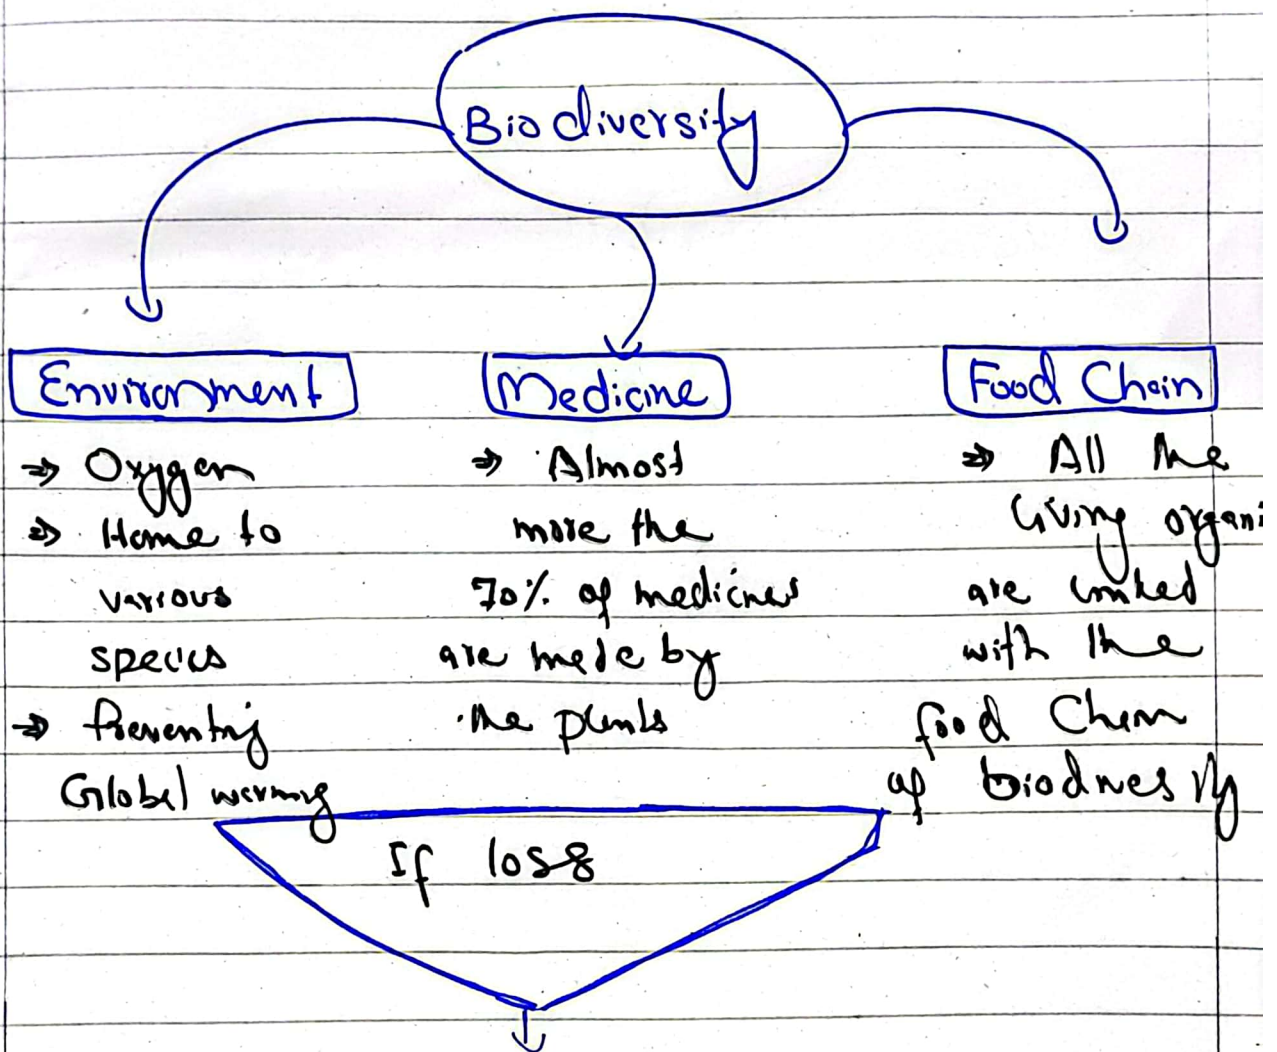 Biodiversity
Environment
⇒ Oxygen
⇒ Home to
various
species
⇒ Preventing
Global warming
Medicine
⇒ Almost
more the
70% of medicines
are made by
the plants
Food Chain
⇒ All the
living organi
are linked
with the
food Chain
of biodiversity
If loss